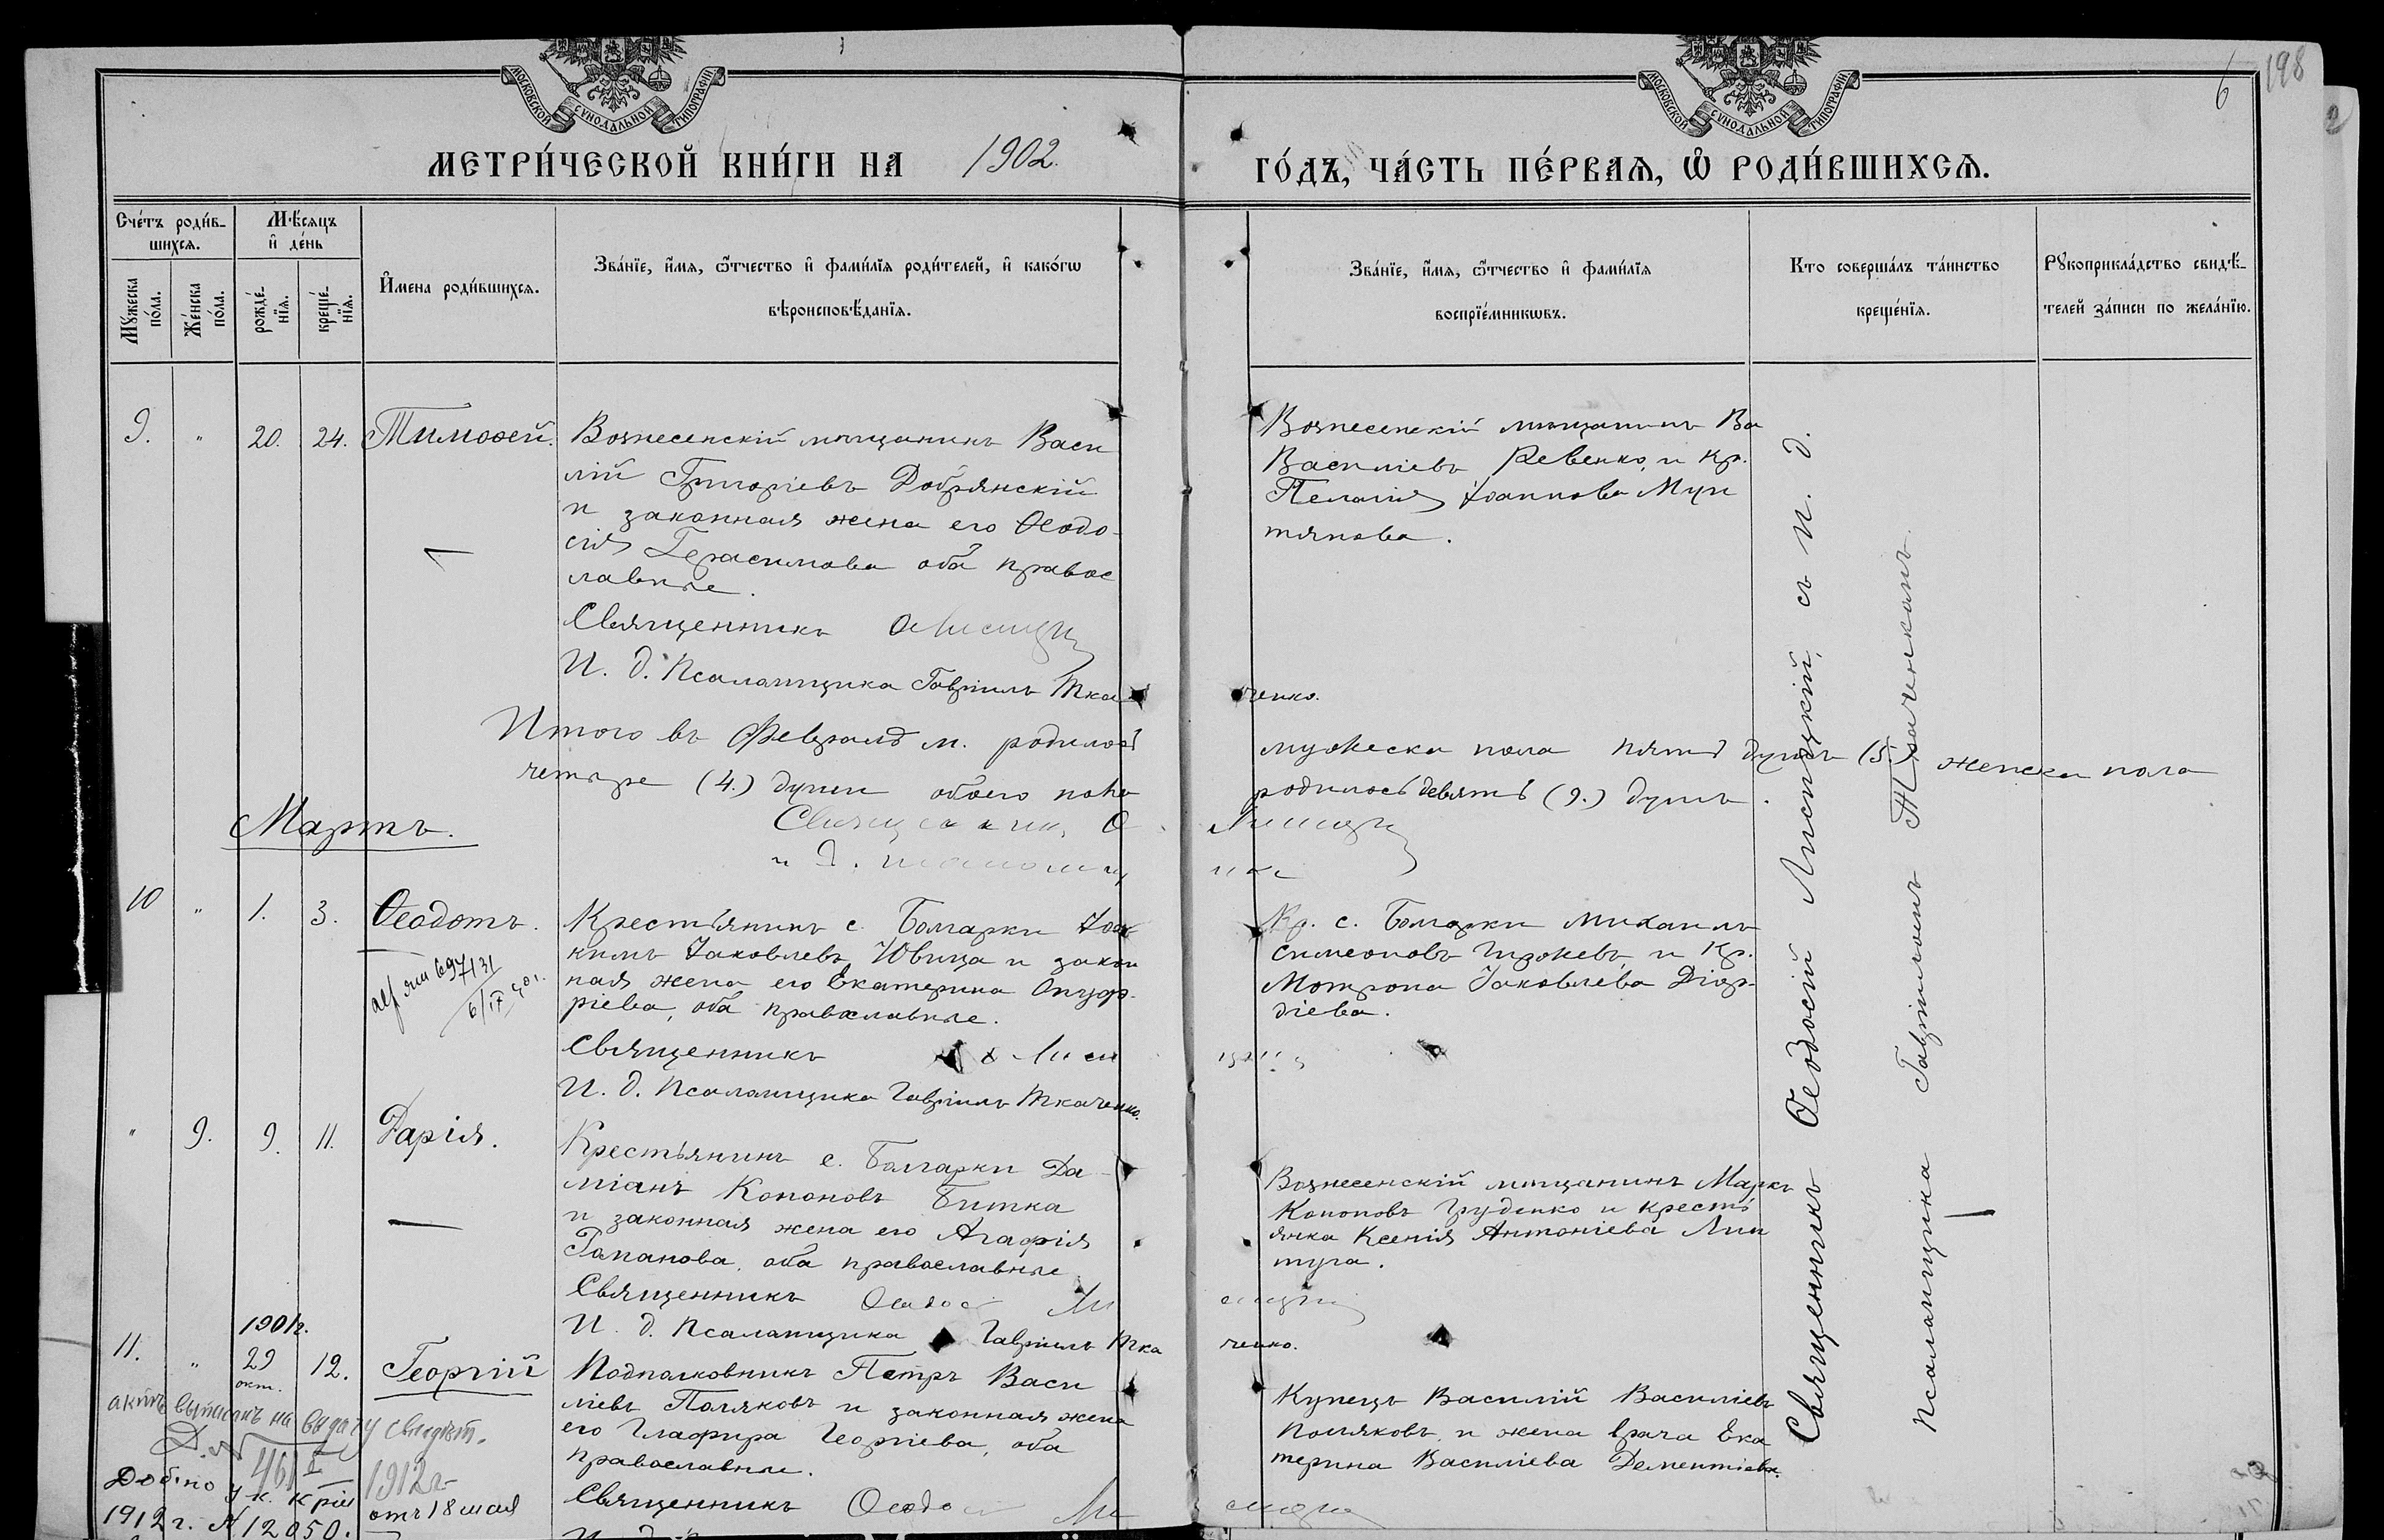 МОСКОВСКОЙ СѴНОДАЛЬНОЙ ТИПОГРАФІИ
МОСКОВСКОЙ СѴНОДАЛЬНОЙ ТИПОГРАФІИ
6 198
2
МЕТРИ́ЧЕСКОЙ КНИ́ГИ НА 1902.
ГО́ДЪ, ЧА́СТЬ ПЕ́РВАѦ, Ѽ РОДИ́ВШИХСѦ.
Сче́тъ роди́в-
шихсѧ.
Мꙋжеска по́ла.
Же́нска по́ла.
Мѣ́сѧцъ
и҆ де́нь
рожде́-нїѧ.
креще́-нїѧ.
И҆мена роди́вшихсѧ.
Зва́нїе, и҆́мѧ, ѻ҆́тчество и҆ фамѝлїѧ роди́телей, и҆ како́гѡ
вѣроисповѣ́данїѧ.
Зва́нїе, и҆́мѧ, ѻ҆́тчество и҆ фами́лїѧ
воспрїе́мникѡвъ.
Кто соверша́лъ та́инство
креще́нїѧ.
Рꙋкоприкла́дство свидѣ́-
телей за́писи по жела́нїю.
9. " 20. 24. Тимоѳей. Вознесенскій мѣщанинъ Васи
лій Григоріевъ Добрянскій
и законная жена его Ѳеодо-
сія Герасимова оба правос
лавные.
Священникъ Ѳ Лисицкі
И. д. Псаломщика Гавріилъ Ткаченко.
Вознесенскій мѣщанинъ Ва
Василіевъ Ревенко, и кр.
Пелагія Іоаннова Мун
тянова.
Итого въ Февралѣ м. родилось мужеска пола пять душъ (5.) женска пола
четыре (4.) души обоего пола родилось девять (9.) душъ.
Священник Ѳ Лисицкі
и д.
Мартъ.
10 " 1. 3. Ѳеодотъ. Крестьянинъ с. Болгарки Іоа
кимъ Іаковлевъ Ювица и закон
ная жена его Екатерина Онуф-
ріева, оба православные.
Священникъ Ѳ Лисицкі
И. д. Псаломщика Гавріилъ Ткаченко.
697131
6/IX
Кр. с. Болгарки Михаилъ
Симеоновъ и Кр.
Мотрона Іаковлева Діор-
діева.
" 9. 9. 11. Дарія. Крестьянинъ с. Болгарки Да-
міанъ Кононовъ Битка
и законная жена его Агафія
Романова, оба православные
Священникъ Ѳеодос Лисицкі
И. д. Псаломщика Гавріилъ Ткаченко.
Вознесенскій мѣщанинъ Маркъ
Кононовъ Груденко и кресть
янка Ксенія Антоніева Лип
туга.
1901 г.
11. " 29 окт. 12. Георгій Подполковникъ Петръ Васи
ліевъ Поляковъ и законная жена
его Глафира Георгіева, оба
православные.
Священникъ Ѳеодо Лисицкі
Купецъ Василій Василіевъ
Поляковъ, и жена врача Ека
терина Василіева Дементіева.
на выдачу свидѣт.
Д. № 461 1912 г.
от 18 мая
1912 г. № 12050.
Священникъ Ѳеодосій Лисицкій, съ И. д.
псаломщика Гавріиломъ Ткаченкомъ